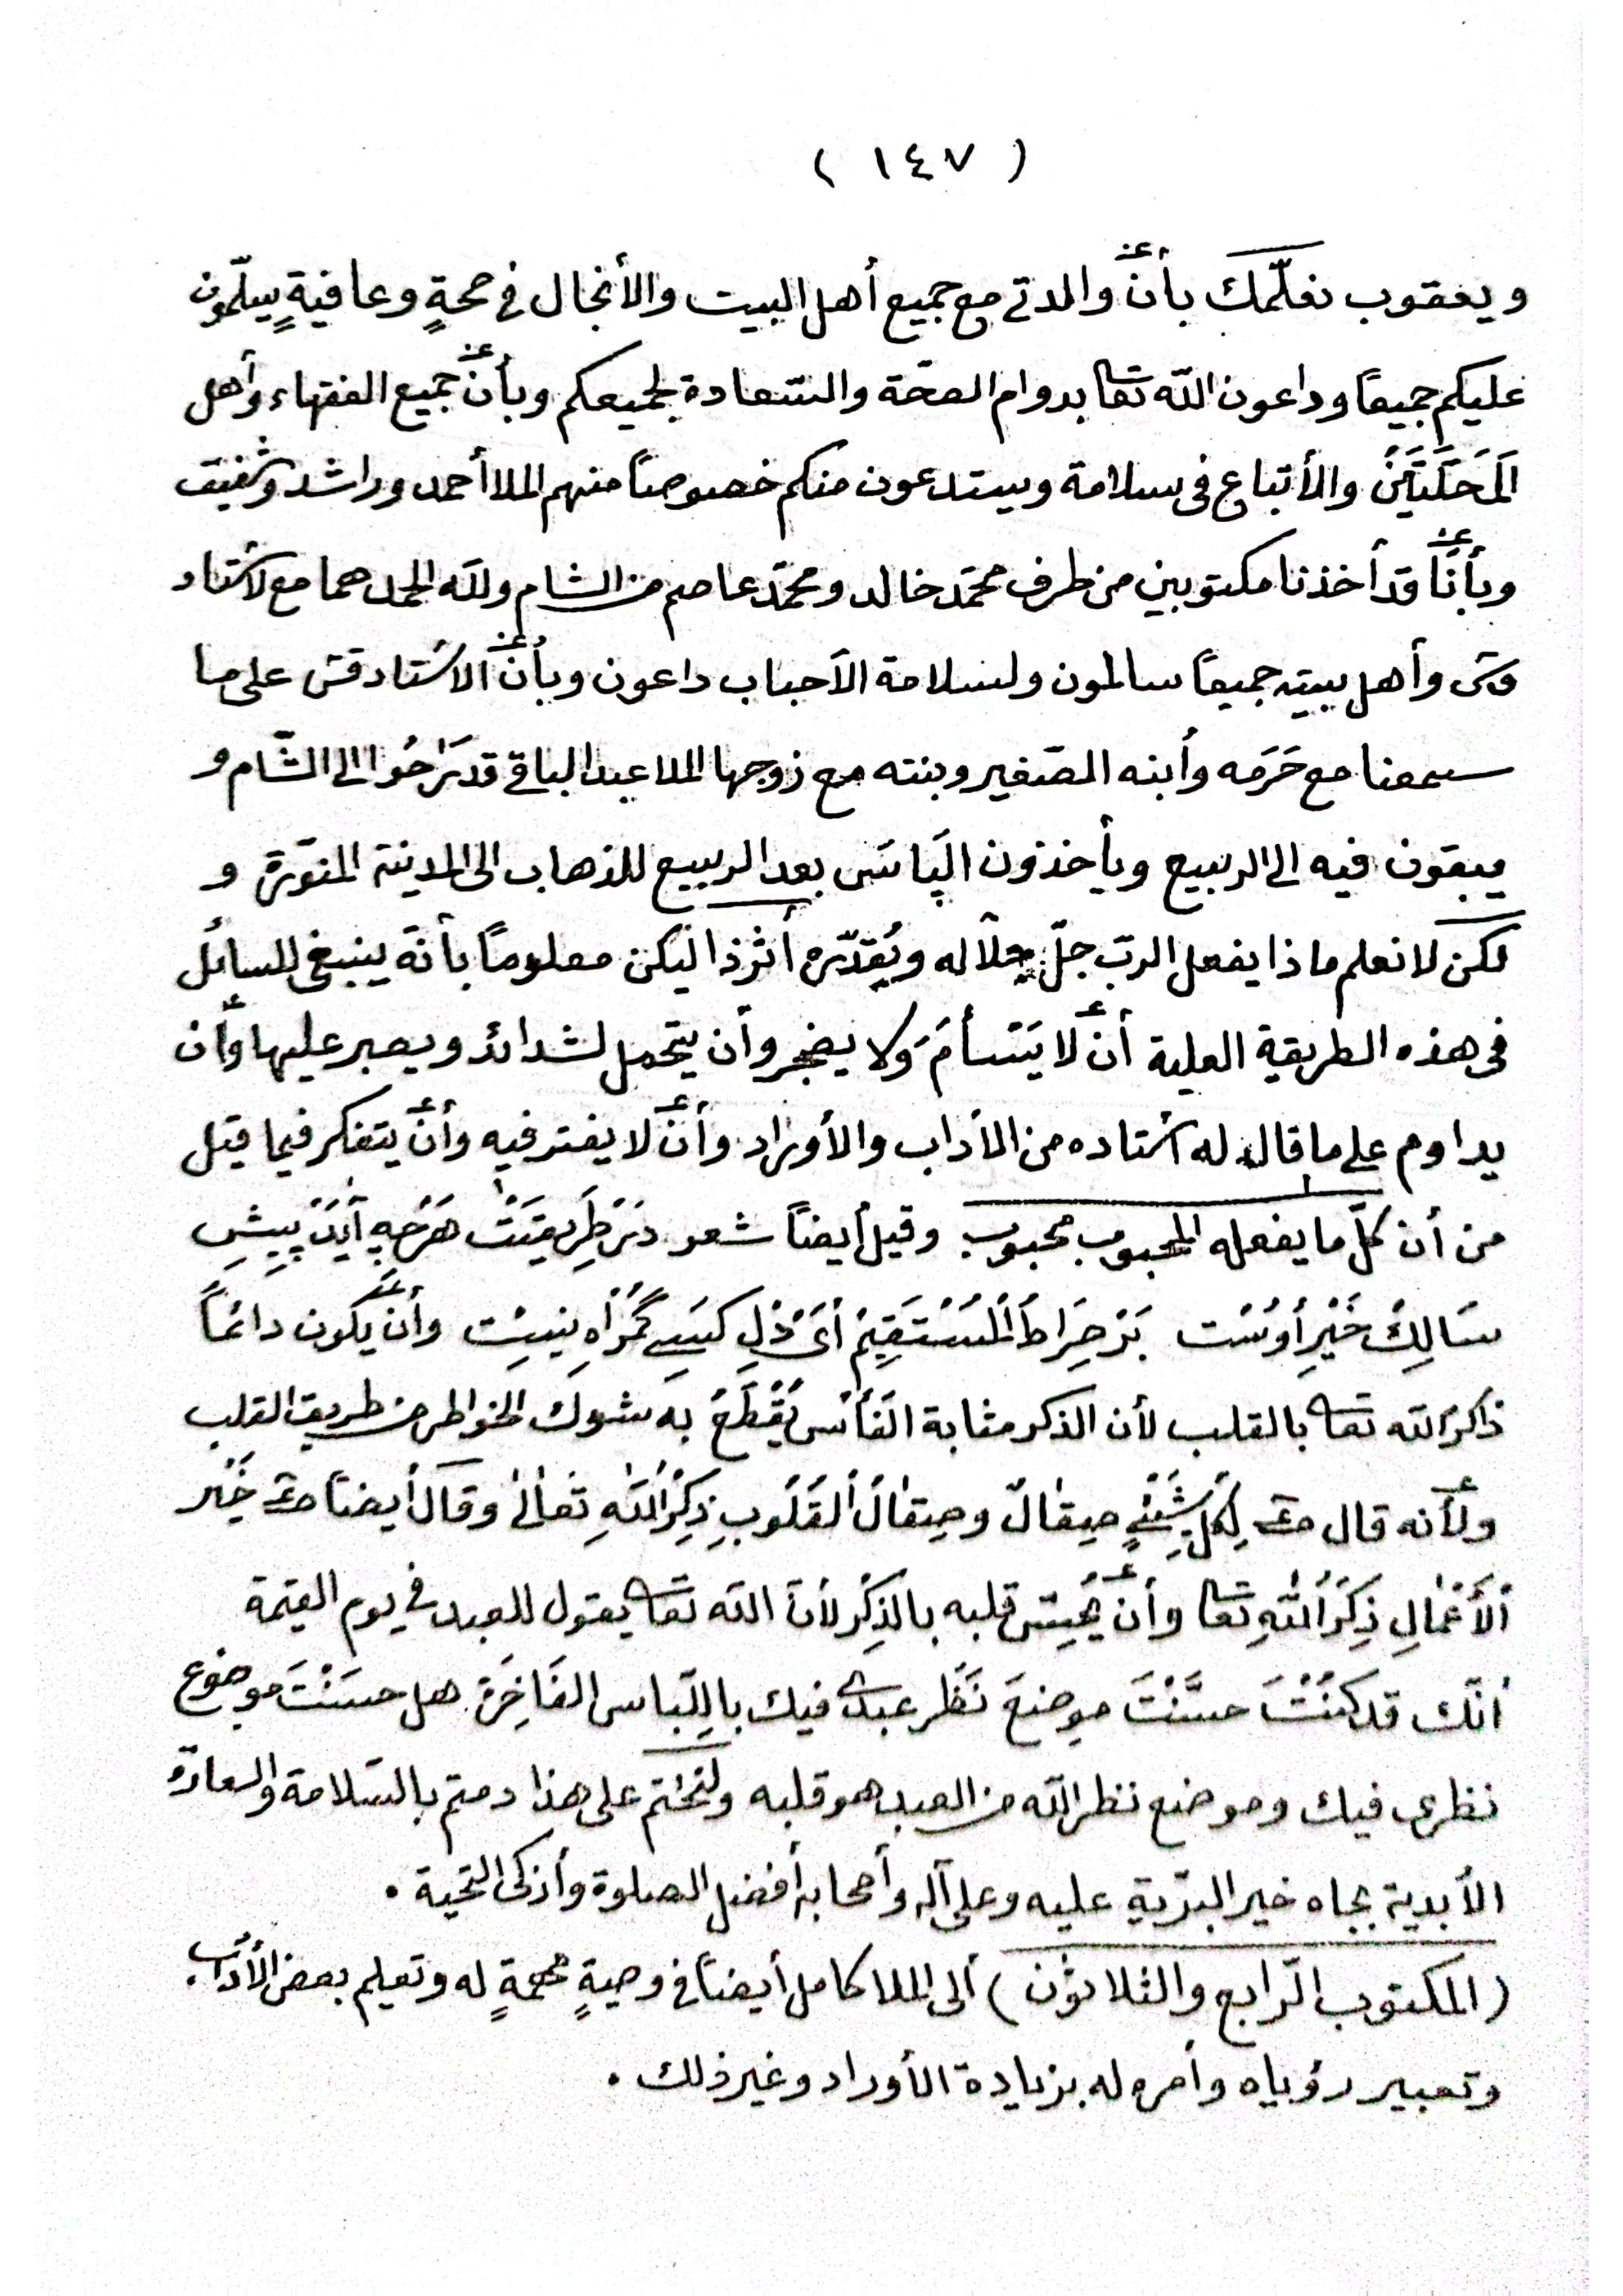 ( ١٤٧ )
ويعقوب نعلّمك بأنّ والدتي مع جميع أهل البيت والأنجال في صحةٍ وعافيةٍ يسلّمون
عليكم جميعًا وداعون اللّه تعا بدوام الصحّة والسّعادة لجميعكم وبأنّ جميع الفقهاء وأهل
المَحَلَّتَيْنَ والأتباع فى سلامة ويستدعون منكم خصوصًا منهم الملا أحمد وراشد وشفيق
وبأنّا قد أخذنا مكتوبين من طرف محمّد خالد ومحمّد عاصم من الشام وللّه الحمد هما مع الاستاد
قس وأهل بيته جميعًا سالمون ولسلامة الأحباب داعون وبأنّ الاستاد قس على ما
سمعنا مع حَرَمه وأبنه الصّغير وبنته مع زوجها الملا عبد الباقي قد رَاحُوا الى الشّام و
يبقون فيه الى الربيع ويأخذون الپَاسَ بعد الربيع للذهاب الى المدينة المنوّرة و
لكن لا نعلم ماذا يفعل الربّ جلّ جلاله ويُقدّره أثر ذا ليكن معلومًا بأنّه ينبغى للسائل
فى هذه الطريقة العلية أن لا يَسْأمَ ولا يضجر وأن يتحمل لشدائد ويصبر عليها وأن
يداوم على ما قال له استاده من الأداب والأوراد وأن لا يفتر فيه وأن يتفكر فيما قيل
من أن كلّ ما يفعله المحبوب محبوب وقيل أيضًا شعر دَرْ طَرِيقَتْ هَرْچِه آيَدْ پِيشِ
سَالِكْ خَيْرِ أُوسْت بَرْ صِرَاطَ الْمُسْتَقِيمْ أىْ دْلِ كَسِي گُمْرَاهِ نِيسْت وأن يكون دائمًا
ذاكرًا للّه تعا بالقلب لأن الذكر مثابة الفَأْسِ يُقْطَعُ به شوك الخواطر من طريق القلب
ولأنه قال صعم لِكُلِّ شَيْئٍ صِيقالٌ وصِيقالُ القُلُوبِ ذِكْرُ اللّهِ تعالىٰ وقال أيضًا صعم خَيْر
الأَعْمالِ ذِكْرُ اللّهِ تعا وأن يُحَسِّن قلبه بالذِكْر لأنّ اللّه تعا يقول للعبد في يوم القيمة
أنّك قد كُنْتَ حسَّنْتَ موضعَ نَظَر عبدى فيك بالِلّباس الفَاخِرَة هل حسَنْتَ موضوع
نظرى فيك وموضع نظر اللّه من العبد هو قلبه ولنختم على هذا دمتم بالسّلامة والسعادة
الأبدية بجاه خير البرّية عليه وعلى آله وأصحابه أفضل الصلوة وأزكى التحية .
(المكتوب الرّابع والثلاثون) ألى الملا كامل أيضًا في وصيةٍ مهمةٍ له وتعليم بعض الأداب.
وتعبير رؤياه وأمره له بزيادة الأوراد وغير ذلك .